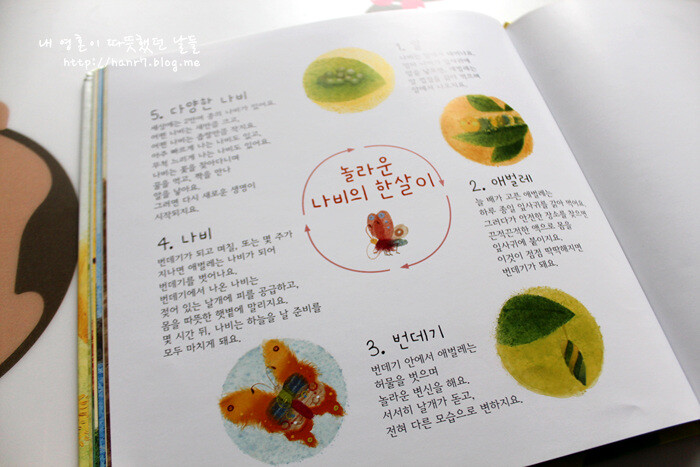 내 영혼이 따뜻했던 날들
http://hanr7.blog.me
놀라운
나비의 한살이
1. 알
2. 애벌레
늘 배가 고픈 애벌레는
하루 종일 잎사귀를 갉아 먹어요.
그러다가 안전한 장소를 찾으면
끈적끈적한 액으로 몸을
잎사귀에 붙이지요.
이것이 점점 딱딱해지면
번데기가 돼요.
3. 번데기
번데기 안에서 애벌레는
허물을 벗으며
놀라운 변신을 해요.
서서히 날개가 돋고,
전혀 다른 모습으로 변하지요.
4. 나비
번데기가 되고 며칠, 또는 몇 주가
지나면 애벌레는 나비가 되어
번데기를 벗어나요.
번데기에서 나온 나비는
젖어 있는 날개에 피를 공급하고,
몸을 따뜻한 햇볕에 말리지요.
몇 시간 뒤, 나비는 하늘을 날 준비를
모두 마치게 돼요.
5. 다양한 나비
세상에는 2만여 종의 나비가 있어요.
어떤 나비는 새만큼 크고,
어떤 나비는 좁쌀만큼 작지요.
아주 빠르게 나는 나비도 있고,
무척 느리게 나는 나비도 있어요.
나비는 꽃을 찾아다니며
꿀을 먹고, 짝을 만나
알을 낳아요.
그러면 다시 새로운 생명이
시작되지요.